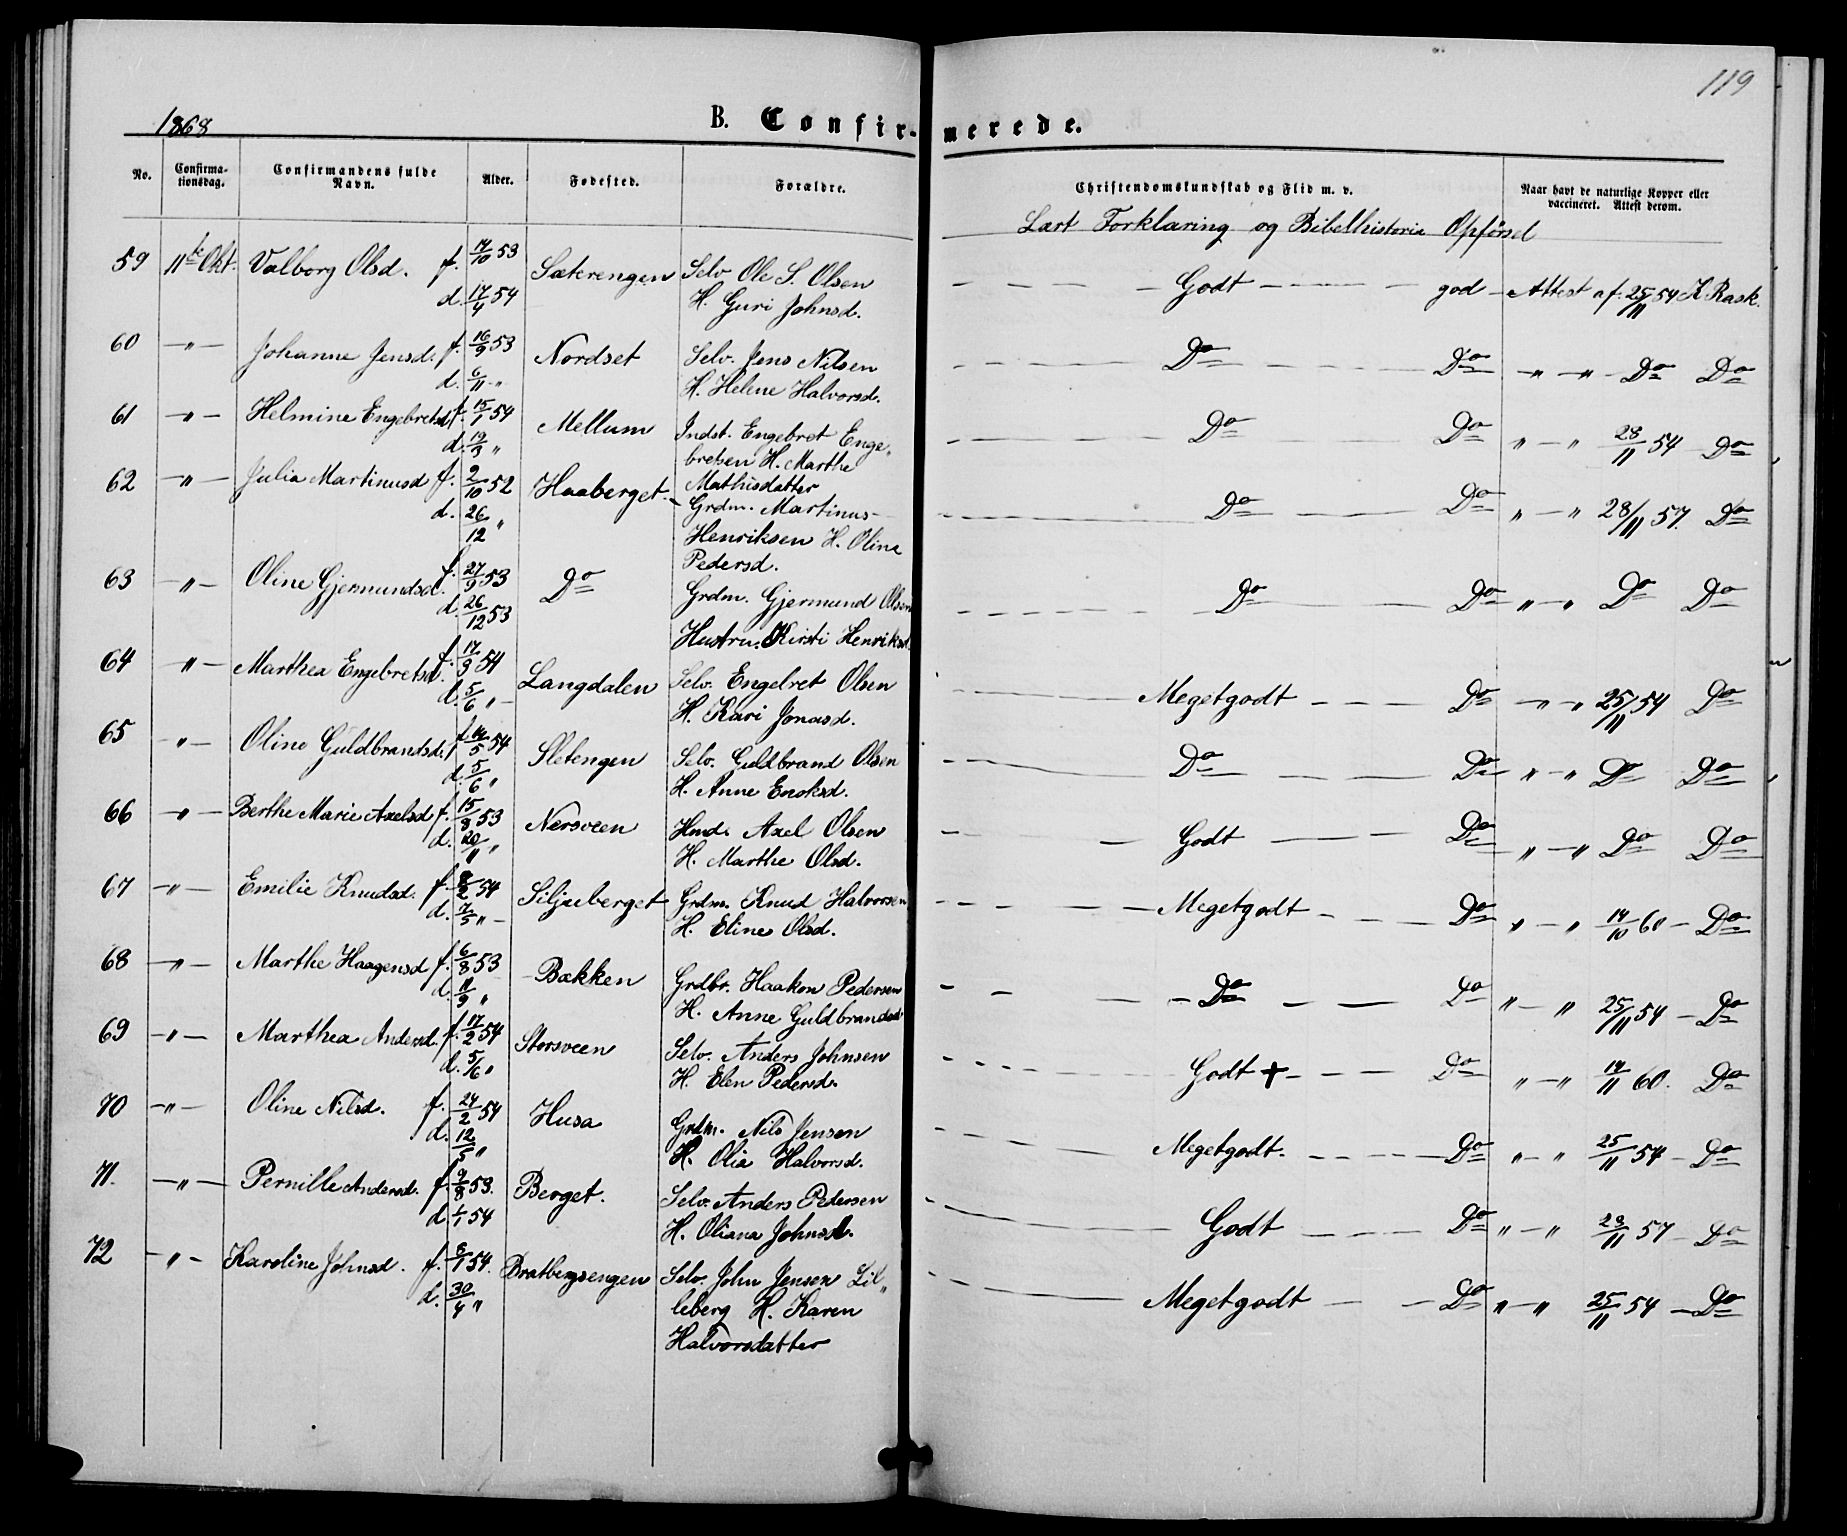 119
1868
B. Confirmerede.
No. Confirmationsdag. Confirmandens fulde Navn. Alder. Fødested. Forældre. Christendomskundskab og Flid m. v. Naar havt de naturlige Kopper eller vaccineret. Attest derom.
Læst Forklaring og Bibelhistorie Opførsel
59 11te Okt. Valborg Olsd. f. 14/10 53 Sæterengen Selv. Ole S. Olsen – – – – Godt – – – – god – Attest af 25/11 54 K Rask.
d. 17/4 54 H. Guri Johnsd.
60 –"– Johanne Jensd. f. 16/9 53 Nordset Selv. Jens Nilsen – – – – Do – – – – Do –"–"– Do Do
d. 6/11 " H. Helene Halvorsd.
61 –"– Helmine Engebretsd. f. 15/1 54 Mellum Indst. Engebret Enge„ – – – – Do – – – Do "–" 28/11 54 – Do
d. 19/3 " bretsen H. Marthe
Mathisdatter
62 –"– Julia Martinusd f. 2/10 52 Haaberget Grdm. Martinus – – – – Do – – – Do "–" 28/11 57. Do
d. 26/12 " Henriksen H. Oline
Pedersd.
63 –"– Oline Gjermundsd. f. 27/9 53 Do Grdm. Gjermund Olsen – – – – Do – – – Do "–" Do Do
d. 26/12 53 Hustru. Kirsti Henriksd.
64 –"– Marthea Engebretsd. f. 17/3 54 Langdalen Selv. Engebret Olsen – – – Megetgodt – – – Do –"–" 25/11 54 Do
d. 5/6 " – H. Kari Jonasd.
65 –"– Oline Guldbrandsd. f. 14/5 54 Sletengen Selv. Guldbrand Olsen – – – – Do – – – Do "–" Do Do
d. 5/6 " H. Anne
66 –"– Berthe Marie Axelsd f. 15/8 53 Nersveen Hmd. Axel Olsen – – Godt – – – Do "–" Do Do
d. 20/11 " H. Marthe Olsd.
67 –"– Emilie Knudsd. f. 8/2 54 Siljuberget Grdm. Knud Halvorsen – – – – Megetgodt – – – Do "–" 14/10 60 – Do
d. 7/5 " – H. Eline Olsd.
68 –"– Marthe Haagensd f. 6/8 53 Bækken Grdbr. Haakon Pedersen – – – – Do – – – Do "–" 25/11 54 – Do
d. 11/9 " H. Anne Guldbrandsd.
69 –"– Marthea Andersd. f. 17/2 54 Storsveen Selv. Anders Johnsen – – – – Godt + – – – Do "–" 14/11 60. Do
d. 5/6 " H. Elen Pedersd.
70 –"– Oline Nilsd. f. 24/2 54 Husa Grdm. Nils Jensen – – – – Megetgodt. – – – – Do "–" 25/11 54 – Do
d. 12/5 " H. Olia Halvorsd.
71. –"– Pernille Andersd. f. 9/8 53. Berget. Selv. Anders Pedersen – – – – Godt – – – Do "–" 28/11 57 – Do
d. 1/1 54 H. Oliana Johnsd.
72 –"– Karoline Johnsd. f. 8/1 54. Bratbergsengen Selv. John Jensen Lil„ – – – – Megetgodt – – Do "–" 25/11 54 – Do
d. 30/4 " leberg H. Karen
Halvorsdatter